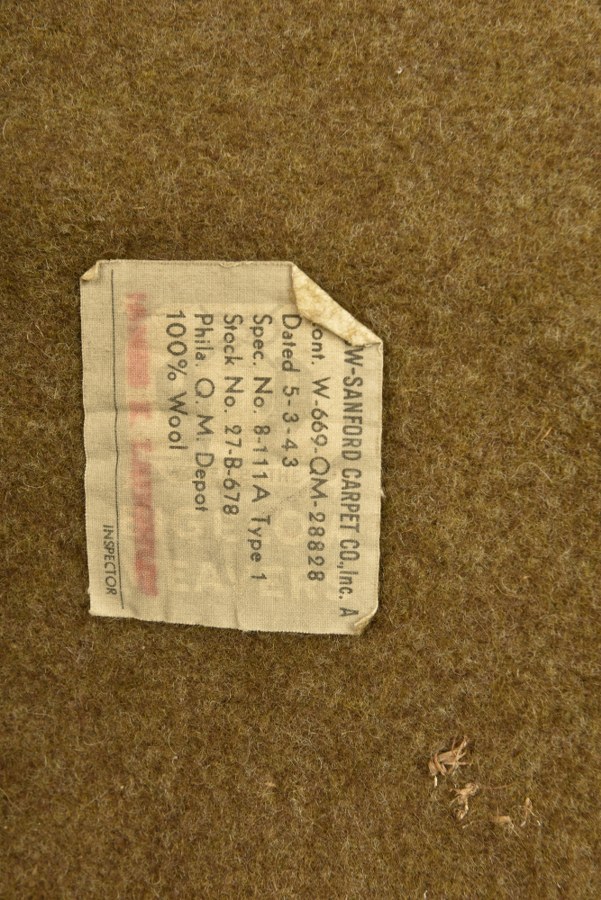 W-SANFORD CARPET CO., Inc. A
ont. W-669-QM-28828
Dated 5-3-43
Spec. No. 8-111A Type 1
Stock No. 27-B-678
Phila. Q. M. Depot
100% Wool
INSPECTOR